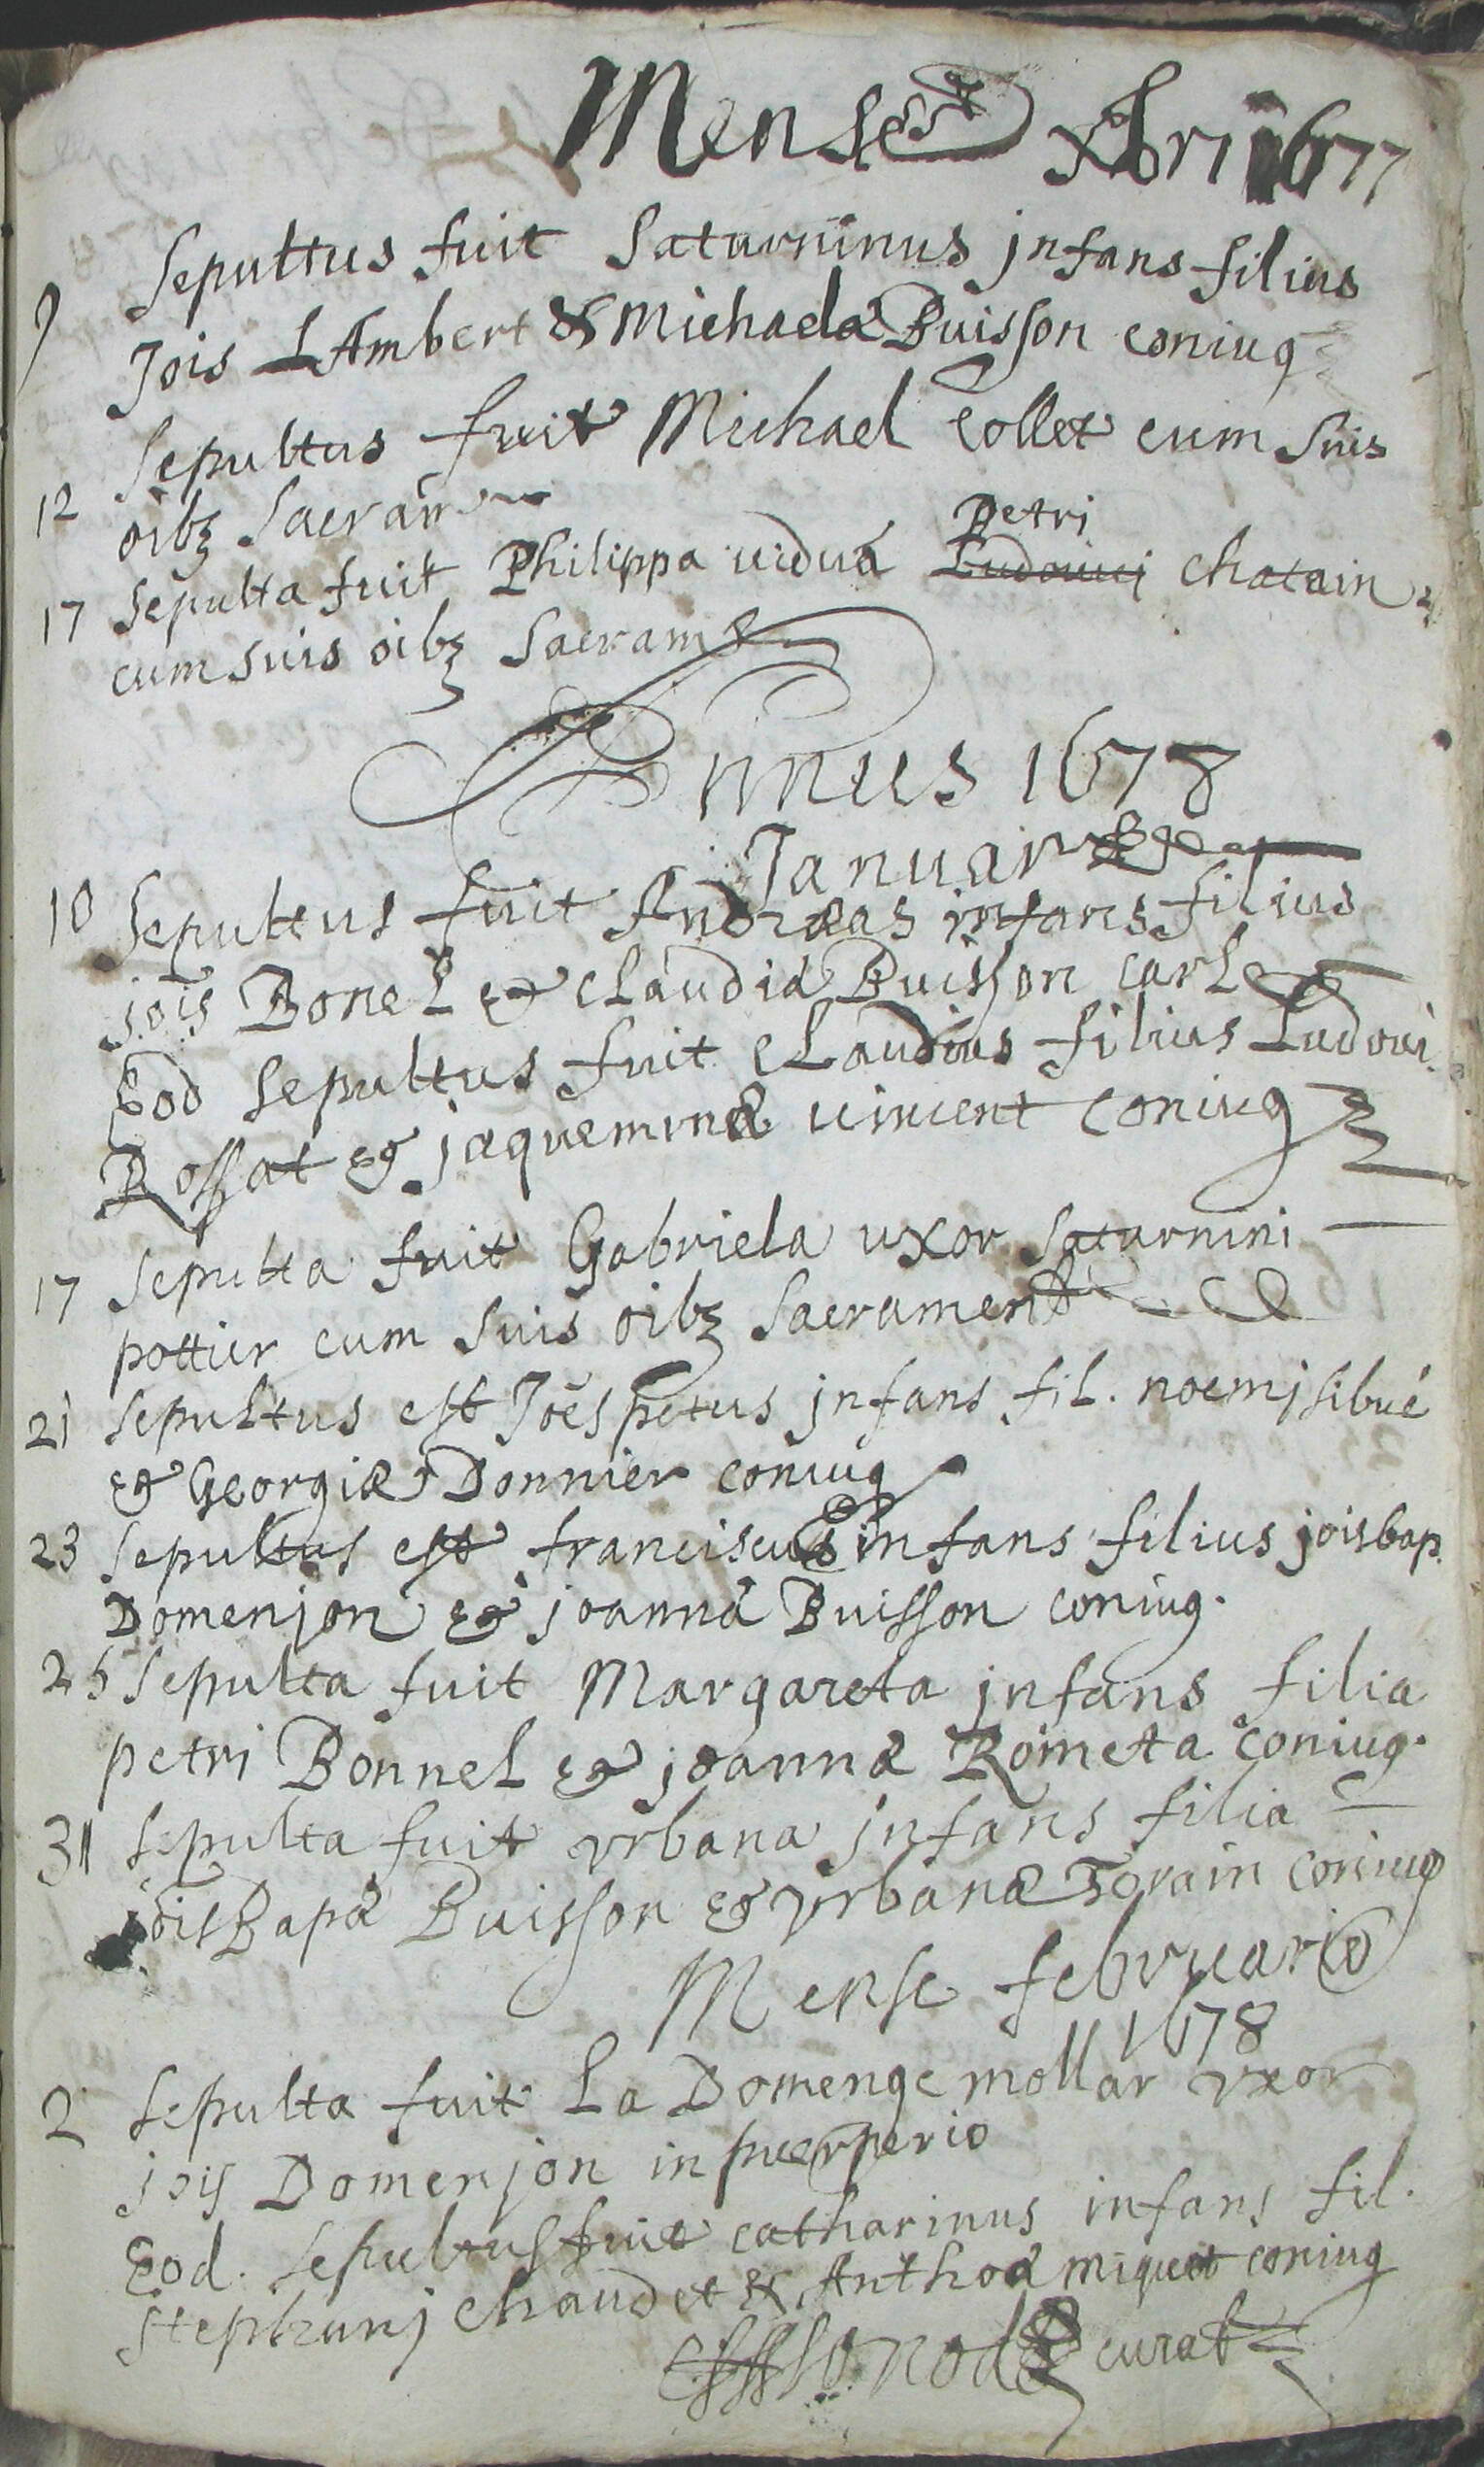 Mense xbri 1677
9 Sepultus fuit Saturninus jnfans filius
Jois LAmbert & Michaelæ Buisson coniug
12 Sepultus fuit Michael Collet cum Suis
oibʒ Sacram
Petri
17 Sepulta fuit Philippa vidua Ludovici Chatain
cum suis oibʒ Sacram
Annus 1678
Januar
10 Sepultus fuit Andræas infans filius
jois Bonel & Claudiæ Buisson carle
Eod Sepultus fuit Claudius filius Ludovi
Rossat & jaqueminæ vincent coniug
17 Sepulta fuit Gabriela vxor Saturnini
pottier cum Suis oibʒ Sacrament
21 Sepultus est Jões petus jnfans fil. noemj sibué
& Georgiæ Donnier coniug
23 Sepultus est franciscus infans filius joisbap.
Domenjon & joannæ Buisson coniug.
25 Sepulta fuit Margareta jnfans filia
petri Bonnel & joannæ Rometa coniug.
31 Sepulta fuit vrbana jnfans filia
jois Bapæ Buisson & vrbanæ Torain coniug
Mense februario
1678
2 Sepulta fuit La Domenge mollar vxor
jois Domenjon in puerperio
Eod. Sepultus fuit catharinus infans fil.
Stephanj Chaudet & Anthoæ miquet coniug
curat